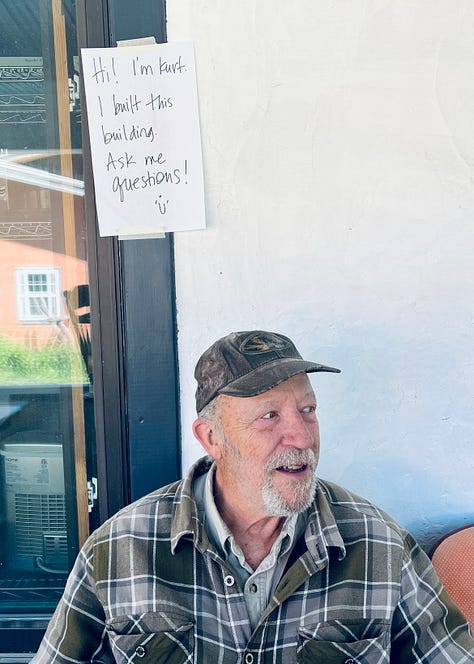 Hi! I'm Kurt.
I built this
building.
Ask me
questions!